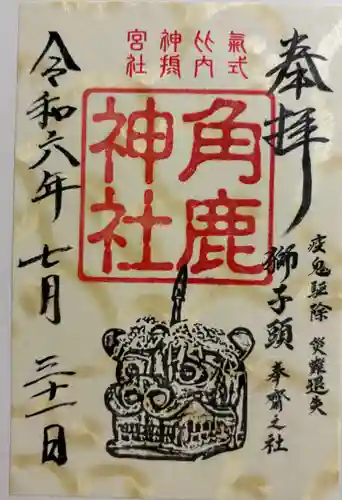 奉拝
疫鬼駆除 災難退失
獅子頭 奉齋之社
氣式
比内
神摂
宮社
角鹿
神社
令和六年 七月 三十一日